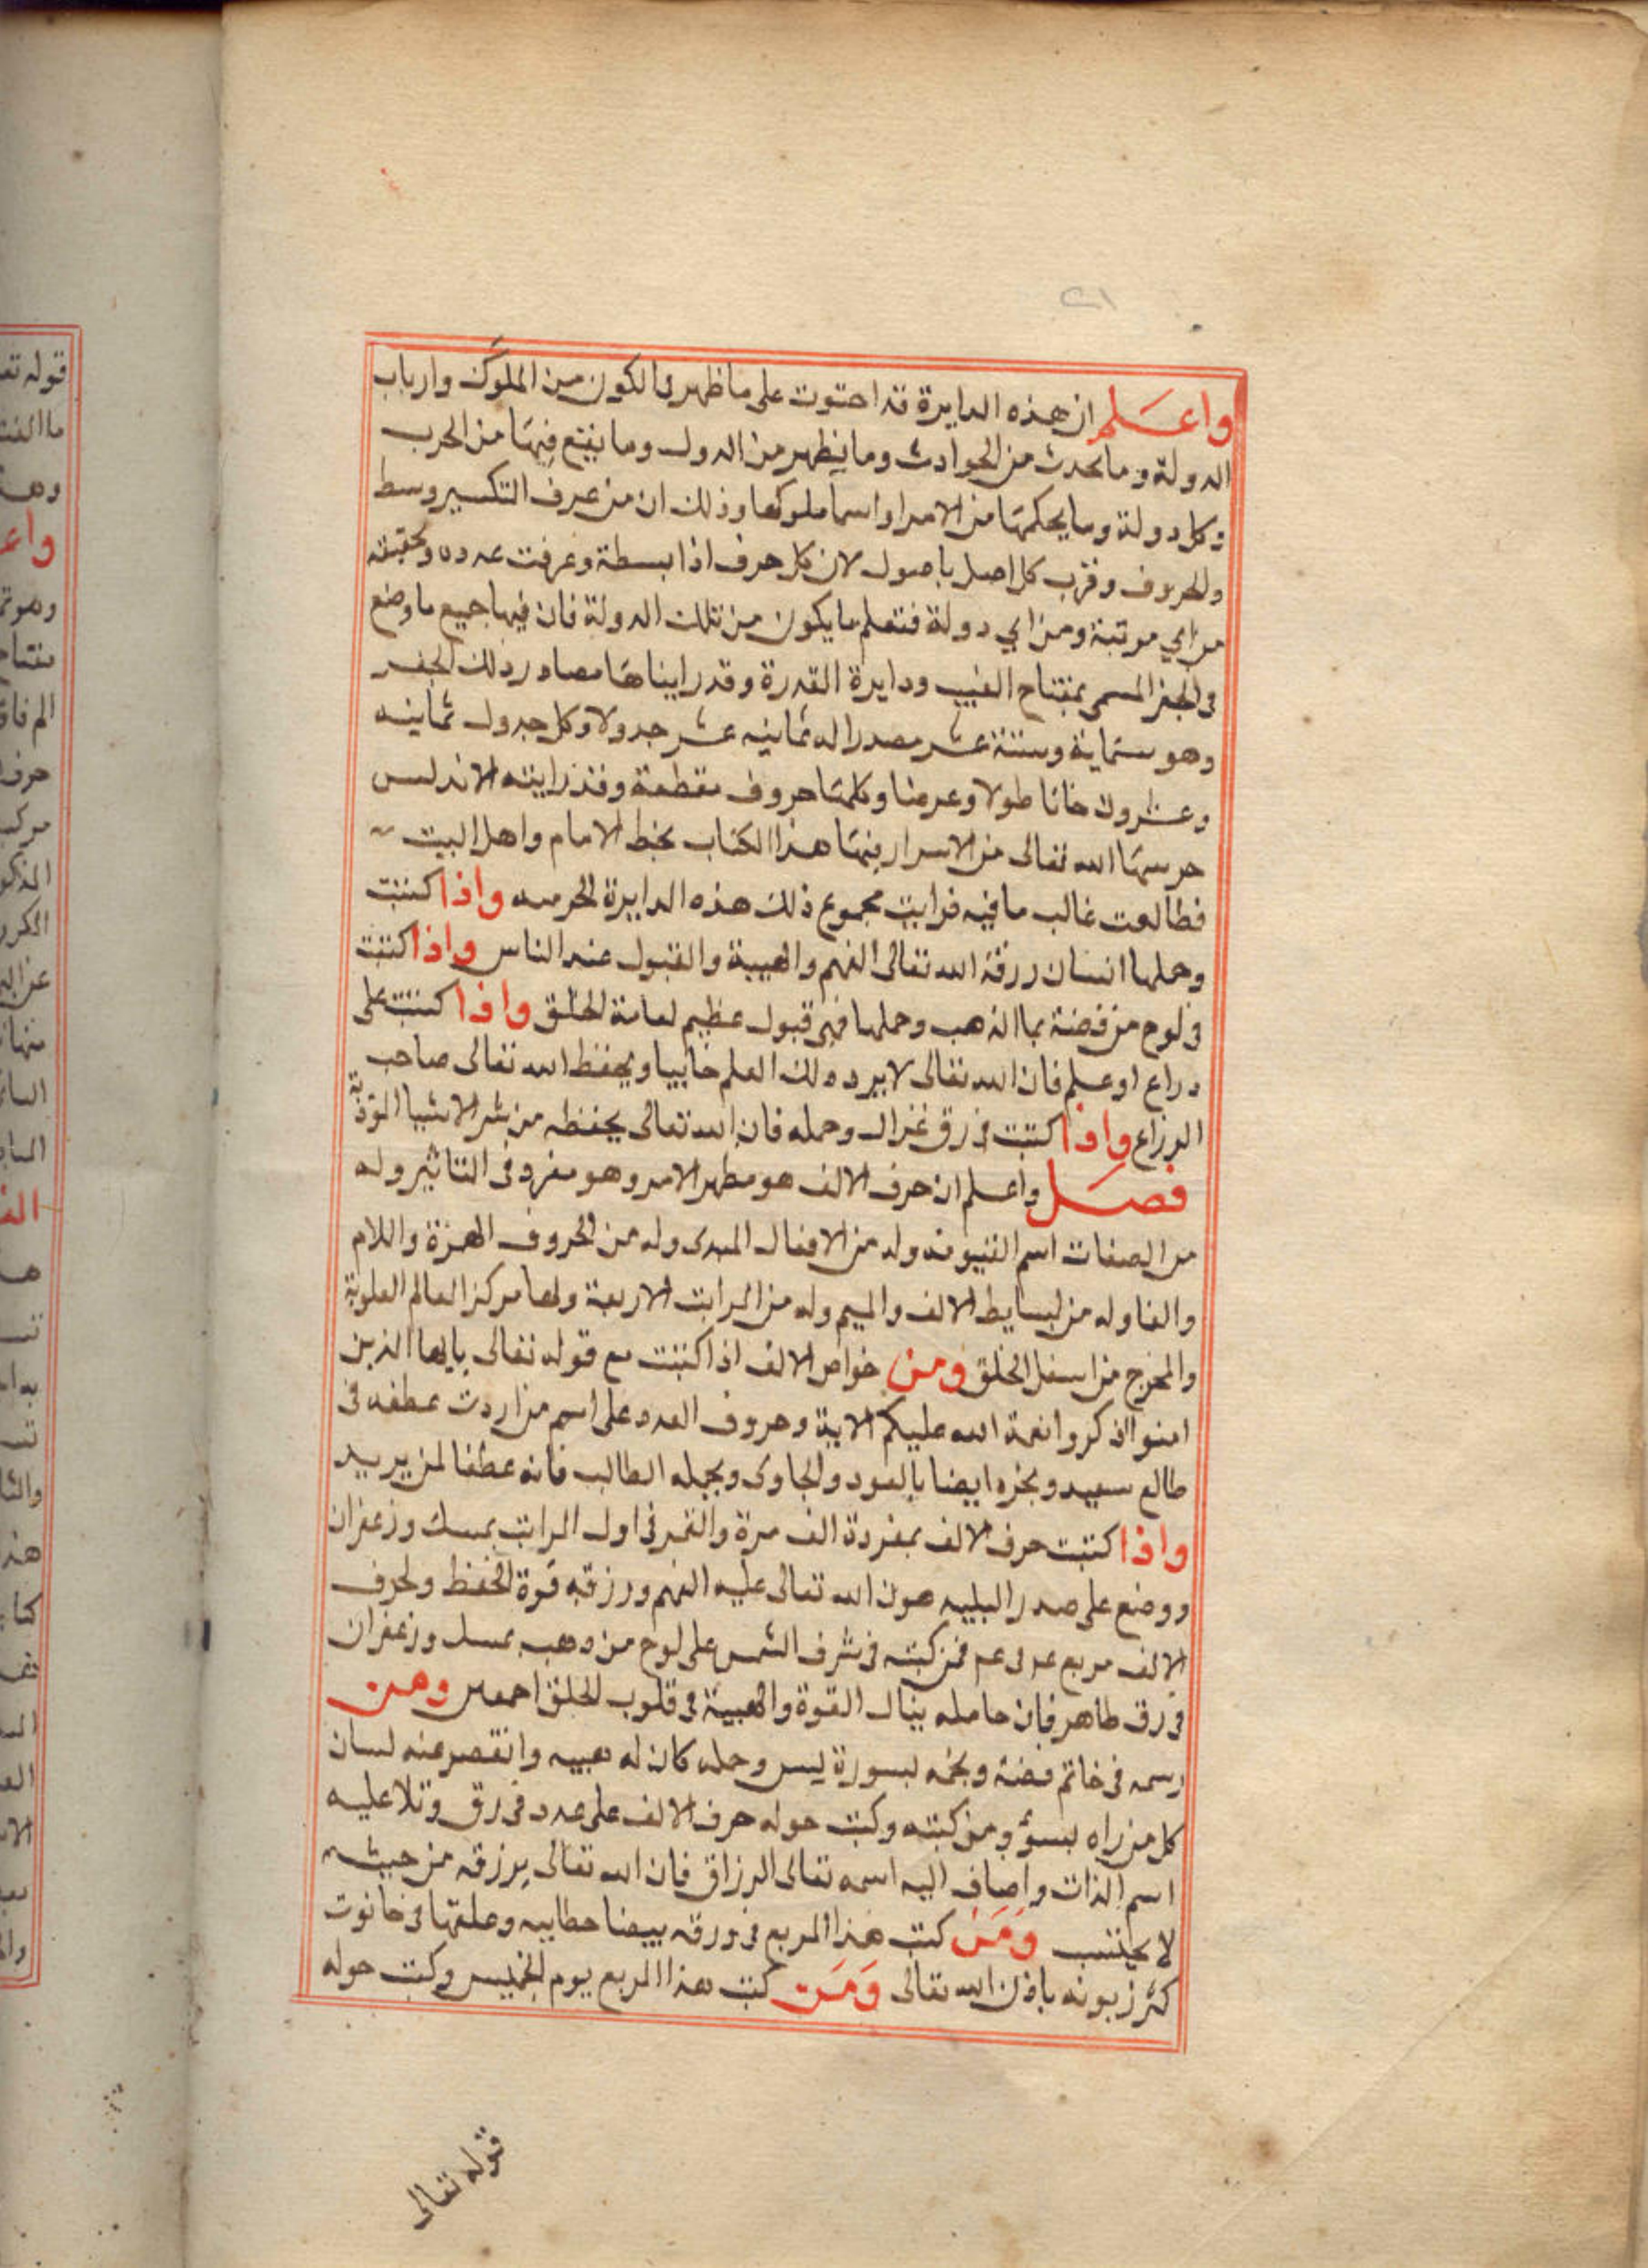 ٢١
واعلم ان هذه الدايرة قد احتوت على ما ظهر فى الكون من الملوك وارباب
الدولة وما يحدث من الحوادث وما يظهر من الدول وما يقع فيها من الحرب
وكل دولة وما يحكمها من الامرا واسما ملوكها وذلك ان من عرف التكسير وسط
والحروف وقرب كل اصل باصول لان كل حرف اذا بسطة وعرفت عدده وتحقيقه
من اي مرتبة ومن اي دولة فتعلم ما يكون من تلك الدولة فان فيها جميع ما وضع
فى الجفر المسمى بمفتاح الغيب ودايرة القدرة وقد رايناها مصادر ذلك الجفر
وهو ستماية وستة عشر مصدرا له ثمانيه عشر جدولا وكل جدول ثمانيه
وعشرون خانا طولا وعرضا وكلها حروف مقطعة وقد رايته الاندلس
حرسها الله تعالى من الاسرار فيها هذا الكتاب بخط الامام واهل البيت
فطالعت غالب ما فيه فرايت مجموع ذلك هذه الدايرة واذا كتبت
وحملها انسان رزقه الله تعالى الفهم والهيبة والقبول عند الناس واذا كتبت
فى لوح من فضة بما الذهب وحملها فهى قبول عظيم لعامة الخلق واذا كتبت على
دراع او علم فان الله تعالى لا يرد ذلك العلم خايبا ويحفظ الله تعالى صاحب
الدراع واذا كتبت فى رق غزال وحمله فان الله تعالى يحفظه من شر الاشيا الموذية
فصل واعلم ان حرف الالف هو مظهر الامر وهو مفرد فى التاثير وله
من الصفات اسم القيومه وله من الافعال المبدى وله من الحروف الهمزة واللام
والفا وله من البسايط الالف والميم وله من المراتب الاربعة ولها مركز العالم العلوية
والمخرج من اسفل الحلق ومن خواص الالف اذا كتبت مع قوله تعالى يايها الذين
امنوا اذكروا نعمة الله عليكم الاية وحروف العدد على اسم من اردت عطفه فى
طالع سعيد وبخره ايضا بالعود والجاوى ويحمله الطالب فانه عطفا لمن يريد
واذا كتبت حرف الالف بمفردة الف مرة والقمر فى اول المراتب بمسك وزعفران
ووضع على صدر البليد هون الله تعالى عليه الفهم ورزقه قوة الحفظ ولحرف
الالف مربع فمن كتبه فى شرف الشمس على لوح من دهب بمسك وزعفران
فى رق طاهر فان حامله ينال القوة والهيبة فى قلوب الخلق اجمعين ومن
رسمه فى خاتم فضة وبخه بسورة يس وحمله كان له هيبه وانقصر عنه لسان
كل من راه بسؤ ومن كتبه وكتب حوله حرف الالف على عدد فى رق وتلا عليه
اسم الذات واضاف اليه اسمه تعالى الرزاق فان الله تعالى يرزقه من حيث
لا يحتسب ومن كتب هذا المربع فى ورقه بيضا حطابيه وعلقها فى حانوت
كثر زبونه باذن الله تعالى ومن كتب هذا المربع يوم الخميس وكتب حوله
قوله تعالى